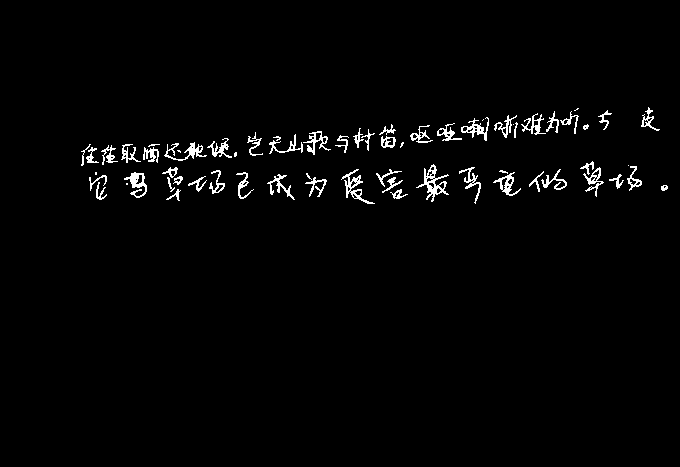 往往取酒还独倾。岂无山歌与村笛,呕哑嘲哳难为听。 皮
草场已成为受害最严重的草场。